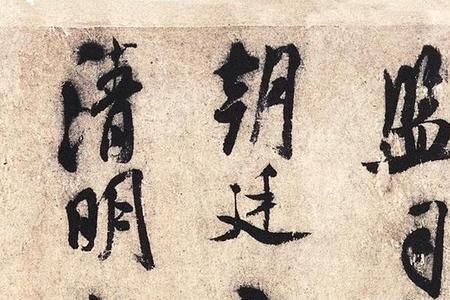 监司
朝廷
清明